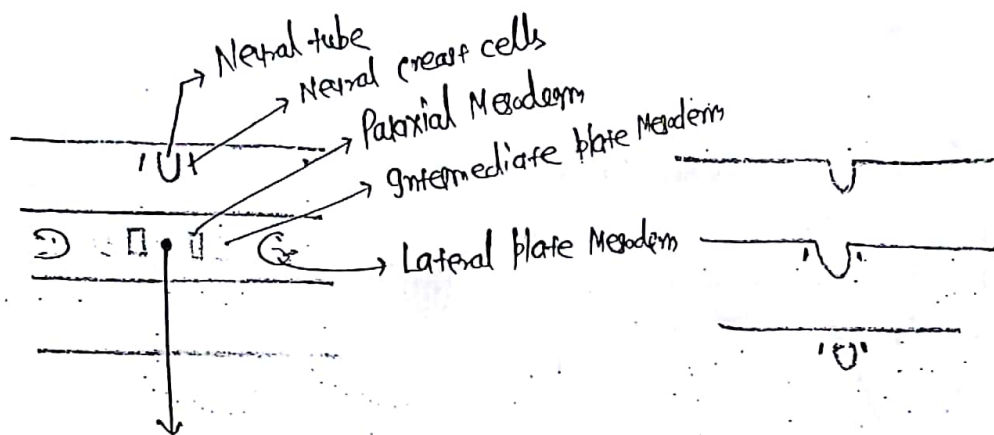 Neural tube
Neural creast cells
Paraxial Mesoderm
Intermediate plate Mesoderm
Lateral plate Mesoderm